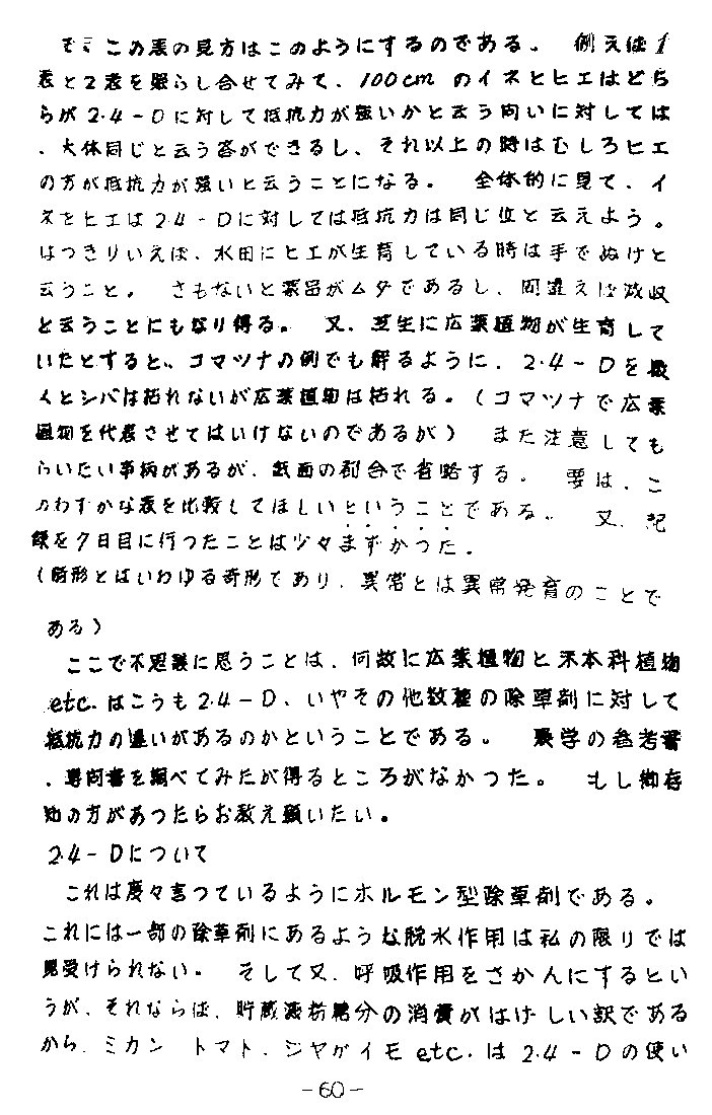 そこでこの表の見方はこのようにするのである。　例えば1
表と2表を照らし合せてみて、100cm のイネとヒエはどち
らが 2.4-Dに対して抵抗力が強いかと云う向いに対しては
、大体同じと云う答ができるし、それ以上の時はむしろヒエ
の方が抵抗力が強いと云うことになる。　全体的に見て、イ
ネとヒエは2.4-Dに対しては抵抗力は同じ位と云えよう。
はつきりいえば、水田にヒエが生育している時は手でぬけと
云うこと。　さもないと薬品がムダであるし、間違えば減収
と云うことにもなり得る。　又、芝生に広葉植物が生育して
いたとすると、コマツナの例でも解るように、2.4-Dを散
くとシバは枯れないが広葉植物は枯れる。(コマツナで広葉
植物を代表させてはいけないのであるが)　また注意しても
らいたい事柄があるが、紙面の都合で省略する。　要は、こ
のわずかな表を比較してほしいということである。　又、記
録を7日目に行つたことは少々まずかつた。
(畸形とはいわゆる奇形であり、異常とは異常発育のことで
ある)
ここで不思議に思うことは、何故に広葉植物と禾本科植物
etc.はこうも2.4-D、いやその他数種の除草剤に対して
抵抗力の違いがあるのかということである。　農学の参考書
、専向書を調べてみたが得るところがなかつた。　もし御存
知の方があつたらお教え願いたい。
2.4-Dについて
これは度々言つているようにホルモン型除草剤である。
これには一部の除草剤にあるような脱水作用は私の限りでは
見受けられない。　そして又、呼吸作用をさかんにするとい
うが、それならば、貯蔵澱粉糖分の消費がはげしい訳である
から、ミカン トマト、ジヤガイモ etc.は 2.4-Dの使い
-60-